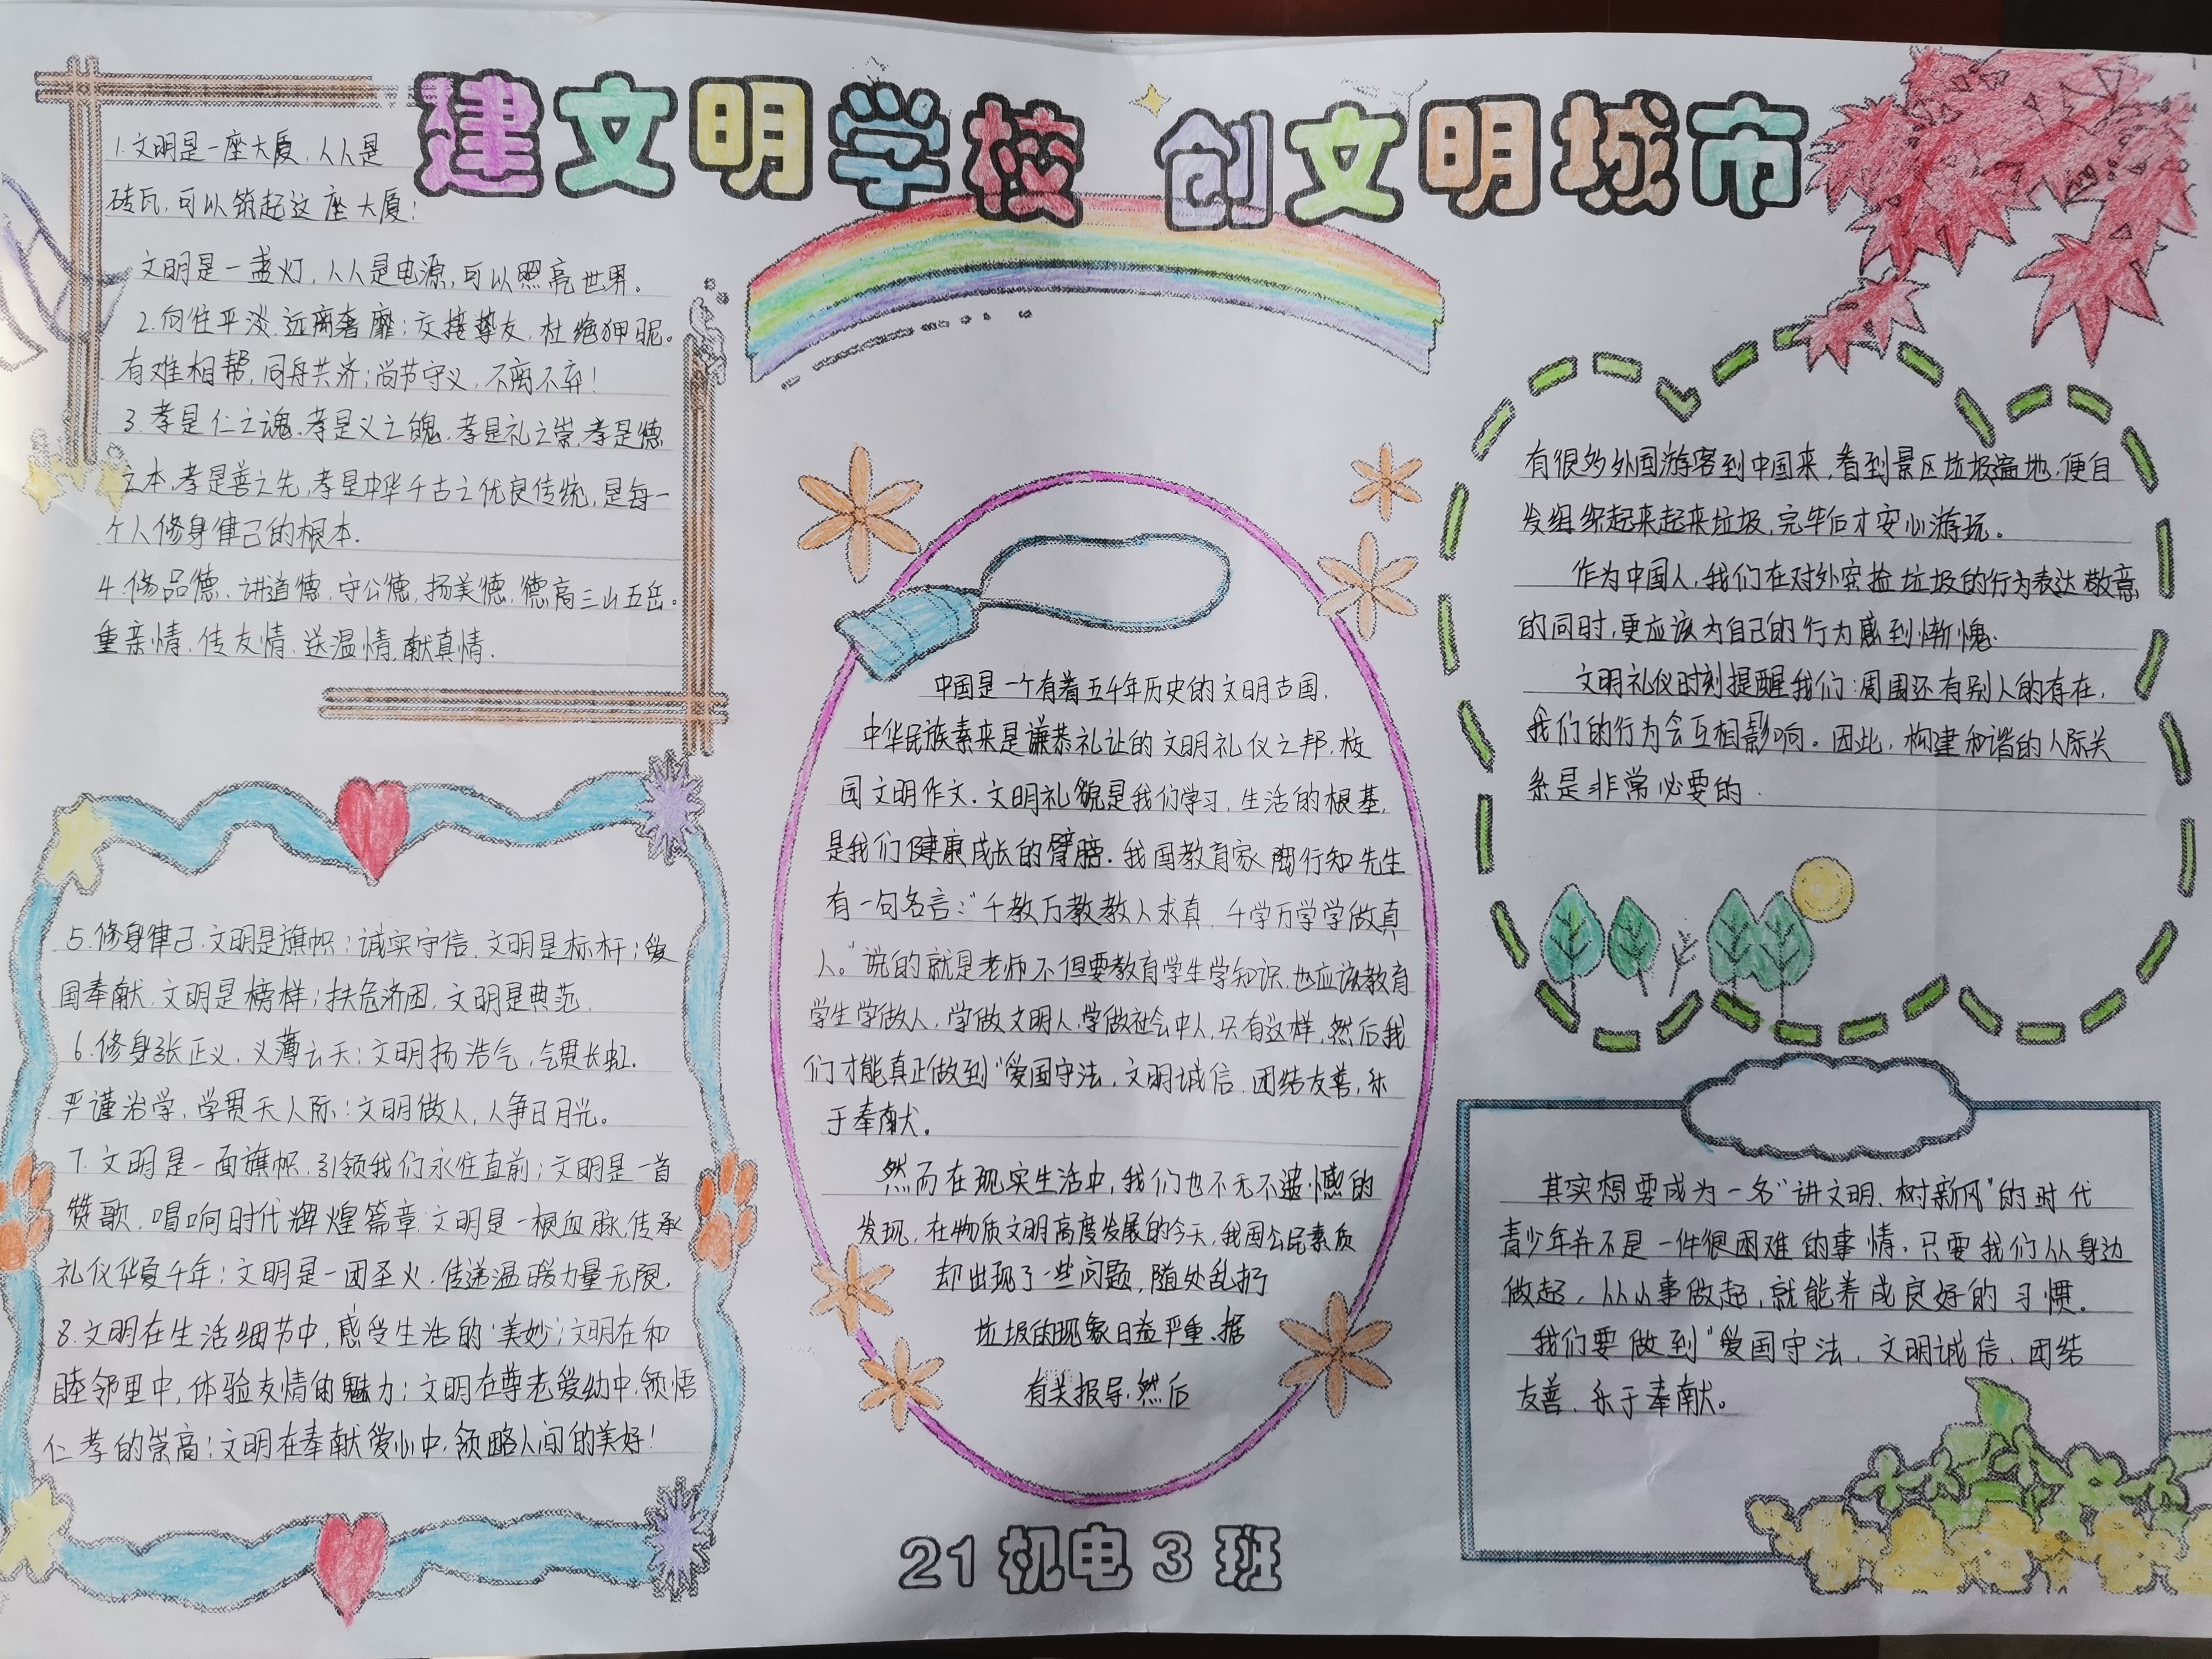 建文明学校 创文明城市
1.文明是一座大厦，人人是
砖瓦，可以筑起这座大厦！
文明是一盏灯，人人是电源，可以照亮世界。
2.向往平淡，远离奢靡；交接挚友，杜绝狎昵。
有难相帮，同舟共济；尚节守义，不离不弃！
3.孝是仁之魂，孝是义之魄，孝是礼之崇，孝是德
之本，孝是善之先，孝是中华千古之优良传统，是每一
个人修身律己的根本.
4.修品德、讲道德，守公德，扬美德，德高三山五岳。
重亲情，传友情，送温情，献真情.
5.修身律己，文明是旗帜；诚实守信，文明是标杆；爱
国奉献，文明是榜样；扶危济困，文明是典范.
6.修身张正义，义薄云天；文明扬浩气，气贯长虹.
严谨治学，学贯天人际；文明做人，人争日月光。
7.文明是一面旗帜，引领我们永往直前；文明是一首
赞歌，唱响时代辉煌篇章；文明是一根血脉，传承
礼仪华夏千年；文明是一团圣火，传递温暖力量无限.
8.文明在生活细节中，感受生活的美妙；文明在和
睦邻里中，体验友情的魅力；文明在尊老爱幼中，领悟
仁孝的崇高；文明在奉献爱心中，领略人间的美好！
中国是一个有着五千年历史的文明古国，
中华民族素来是谦恭礼让的文明礼仪之邦，校
园文明作文.文明礼貌是我们学习，生活的根基，
是我们健康成长的臂膀.我国教育家陶行知先生
有一句名言：“千教万教教人求真，千学万学学做真
人。”说的就是老师不但要教育学生学知识，也应该教育
学生学做人，学做文明人，学做社会中人，只有这样，然后我
们才能真正做到“爱国守法，文明诚信，团结友善，乐
于奉献。
然而在现实生活中，我们也不无不遗憾的
发现，在物质文明高度发展的今天，我国公民素质
却出现了一些问题，随处乱扔
垃圾的现象日益严重，据
有关报导，然后
有很多外国游客到中国来，看到景区垃圾遍地，便自
发组织起来起来垃圾，完毕后才安心游玩。
作为中国人，我们在对外宾捡垃圾的行为表达敬意
的同时，更应该为自己的行为感到惭愧.
文明礼仪时刻提醒我们：周围还有别人的存在，
我们的行为会互相影响。因此，构建和谐的人际关
系是非常必要的.
其实想要成为一名“讲文明、树新风”的时代
青少年并不是一件很困难的事情，只要我们从身边
做起，从小事做起，就能养成良好的习惯。
我们要做到“爱国守法，文明诚信，团结
友善，乐于奉献。
21机电3班